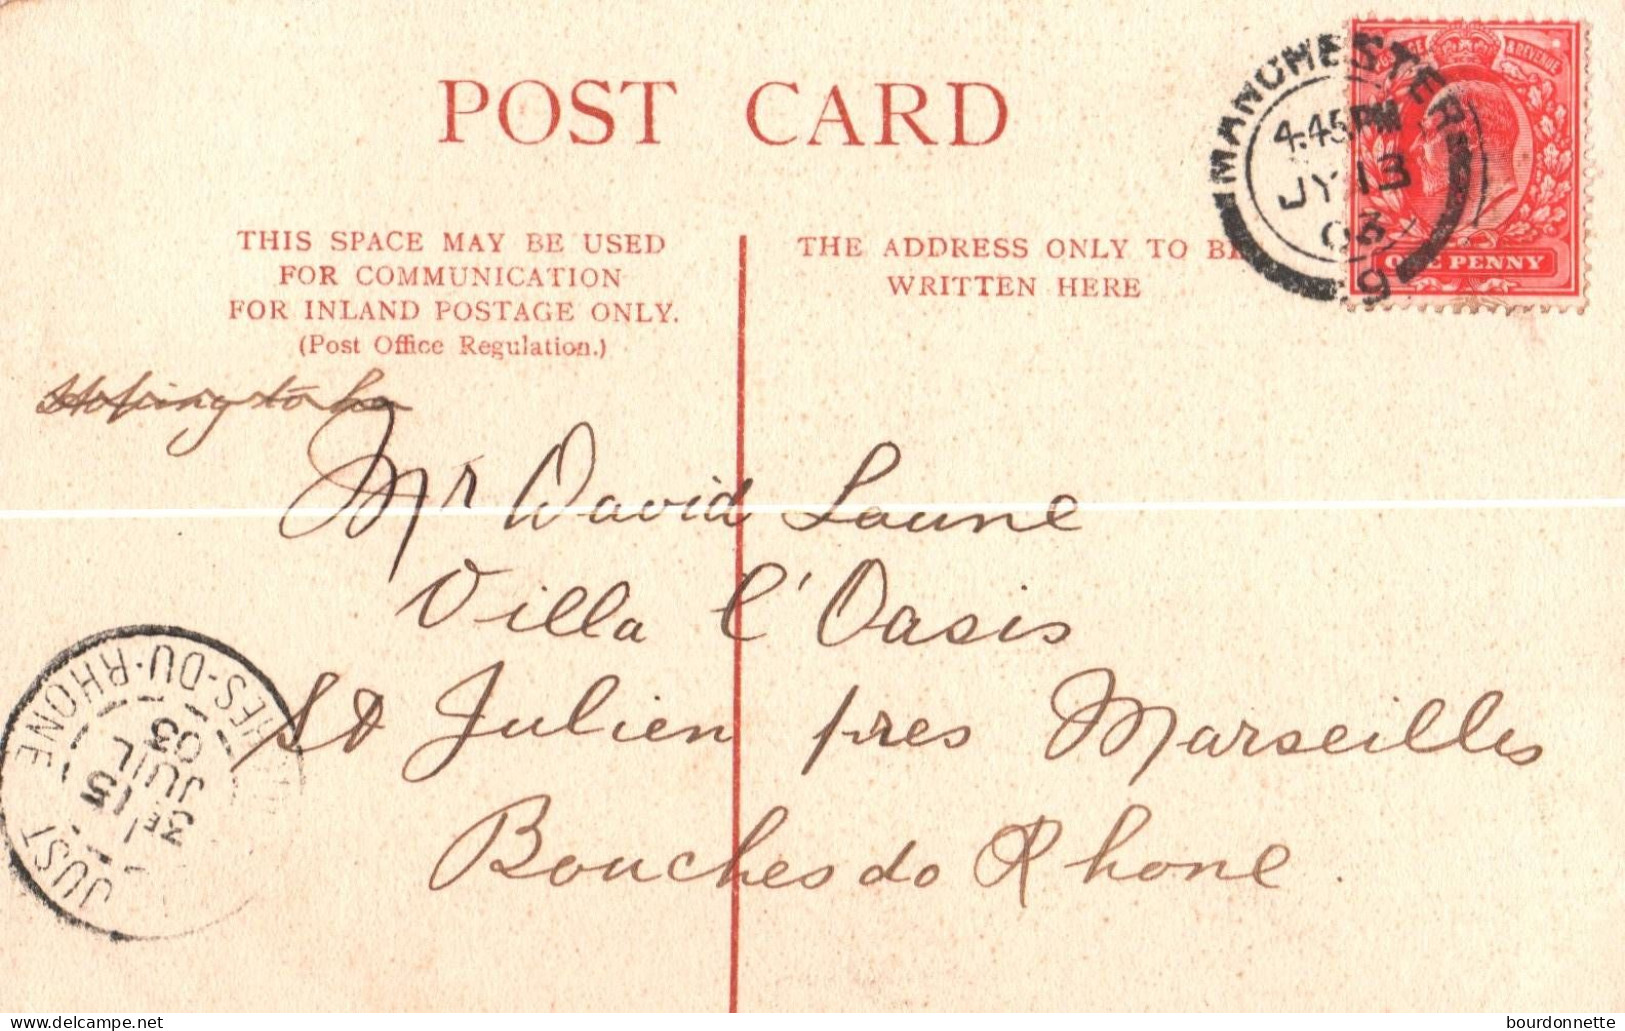 POST CARD
THIS SPACE MAY BE USED
FOR COMMUNICATION
FOR INLAND POSTAGE ONLY.
(Post Office Regulation.)
THE ADDRESS ONLY TO BE
WRITTEN HERE
POSTAGE & REVENUE
ONE PENNY
MANCHESTER
4.45PM
JY 13
03
9
Hoping to
Mr David Laune
Villa l'Oasis
St Julien pres Marseilles
Bouches do Rhone.
HES-DU-RHONE
3E
15
JUIL
03
ST JUST
bourdonnette